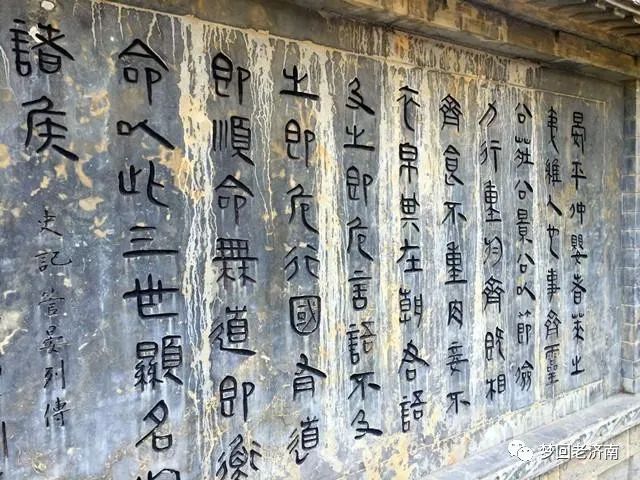 晏平仲嬰者萊之
夷維人也事齊靈
公莊公景公以節儉
力行重於齊既相
齊食不重肉妾不
衣帛其在朝君語
及之即危言語不及
之即危行國有道
即順命無道即衡
命以此三世顯名於
諸侯
史記管晏列傳
梦回老济南